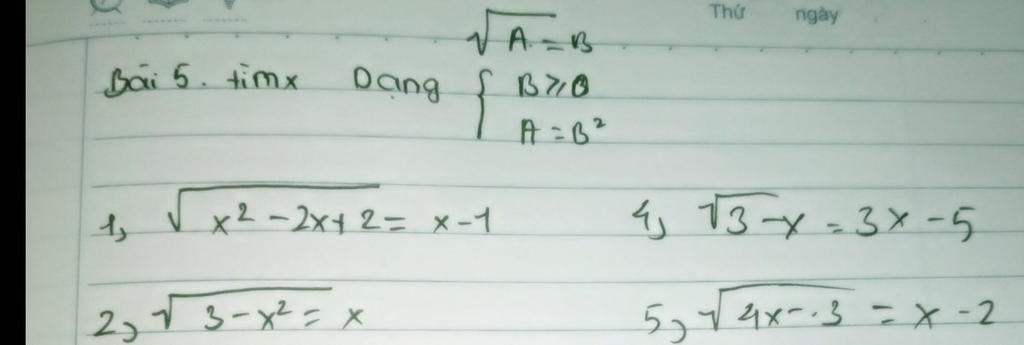 Thứ ngày
√A = B
Bài 5. tìm x Dạng { B ⩾ 0
A = B²
1, √(x² - 2x + 2) = x - 1
4, √(3 - x) = 3x - 5
2, √(3 - x²) = x
5, √(4x - 3) = x - 2